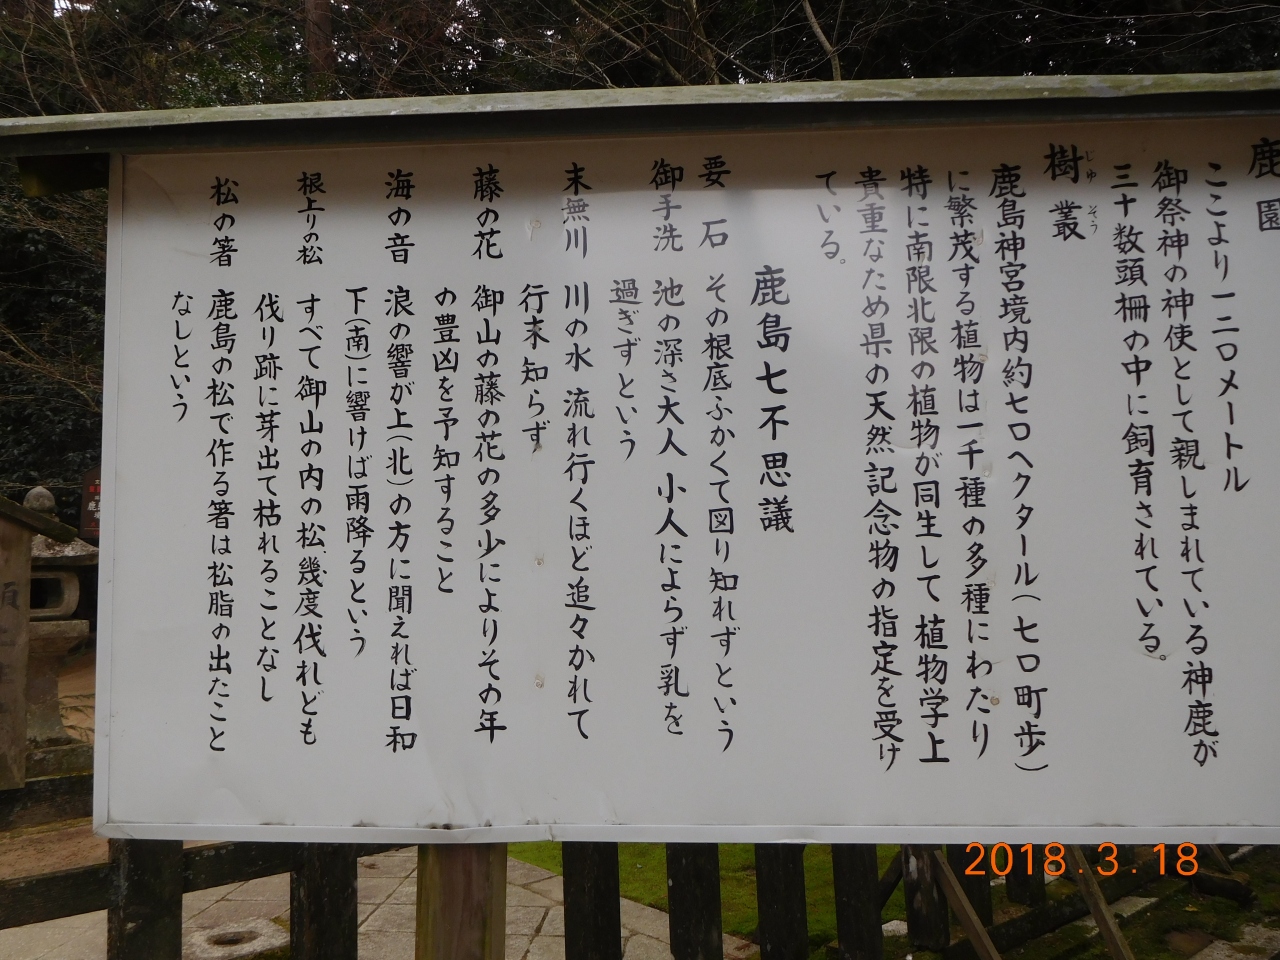 鹿園
ここより一二〇メートル
御祭神の神使として親しまれている神鹿が
三十数頭柵の中に飼育されている。
樹叢
じゅ そう
鹿島神宮境内約七〇ヘクタール(七〇町歩)
に繁茂する植物は一千種の多種にわたり
特に南限北限の植物が同生して植物学上
貴重なため県の天然記念物の指定を受け
ている。
鹿島七不思議
要石 その根底ふかくて図り知れずという
御手洗 池の深さ大人 小人によらず乳を
過ぎずという
末無川 川の水 流れ行くほど追々かれて
行末 知らず
藤の花 御山の藤の花の多少によりその年
の豊凶を予知すること
海の音 浪の響が上(北)の方に聞えれば日和
下(南)に響けば雨降るという
根上りの松 すべて御山の内の松、幾度伐れども
伐り跡に芽出て枯れることなし
松の箸 鹿島の松で作る箸は松脂の出たこと
なしという
2018.3.18